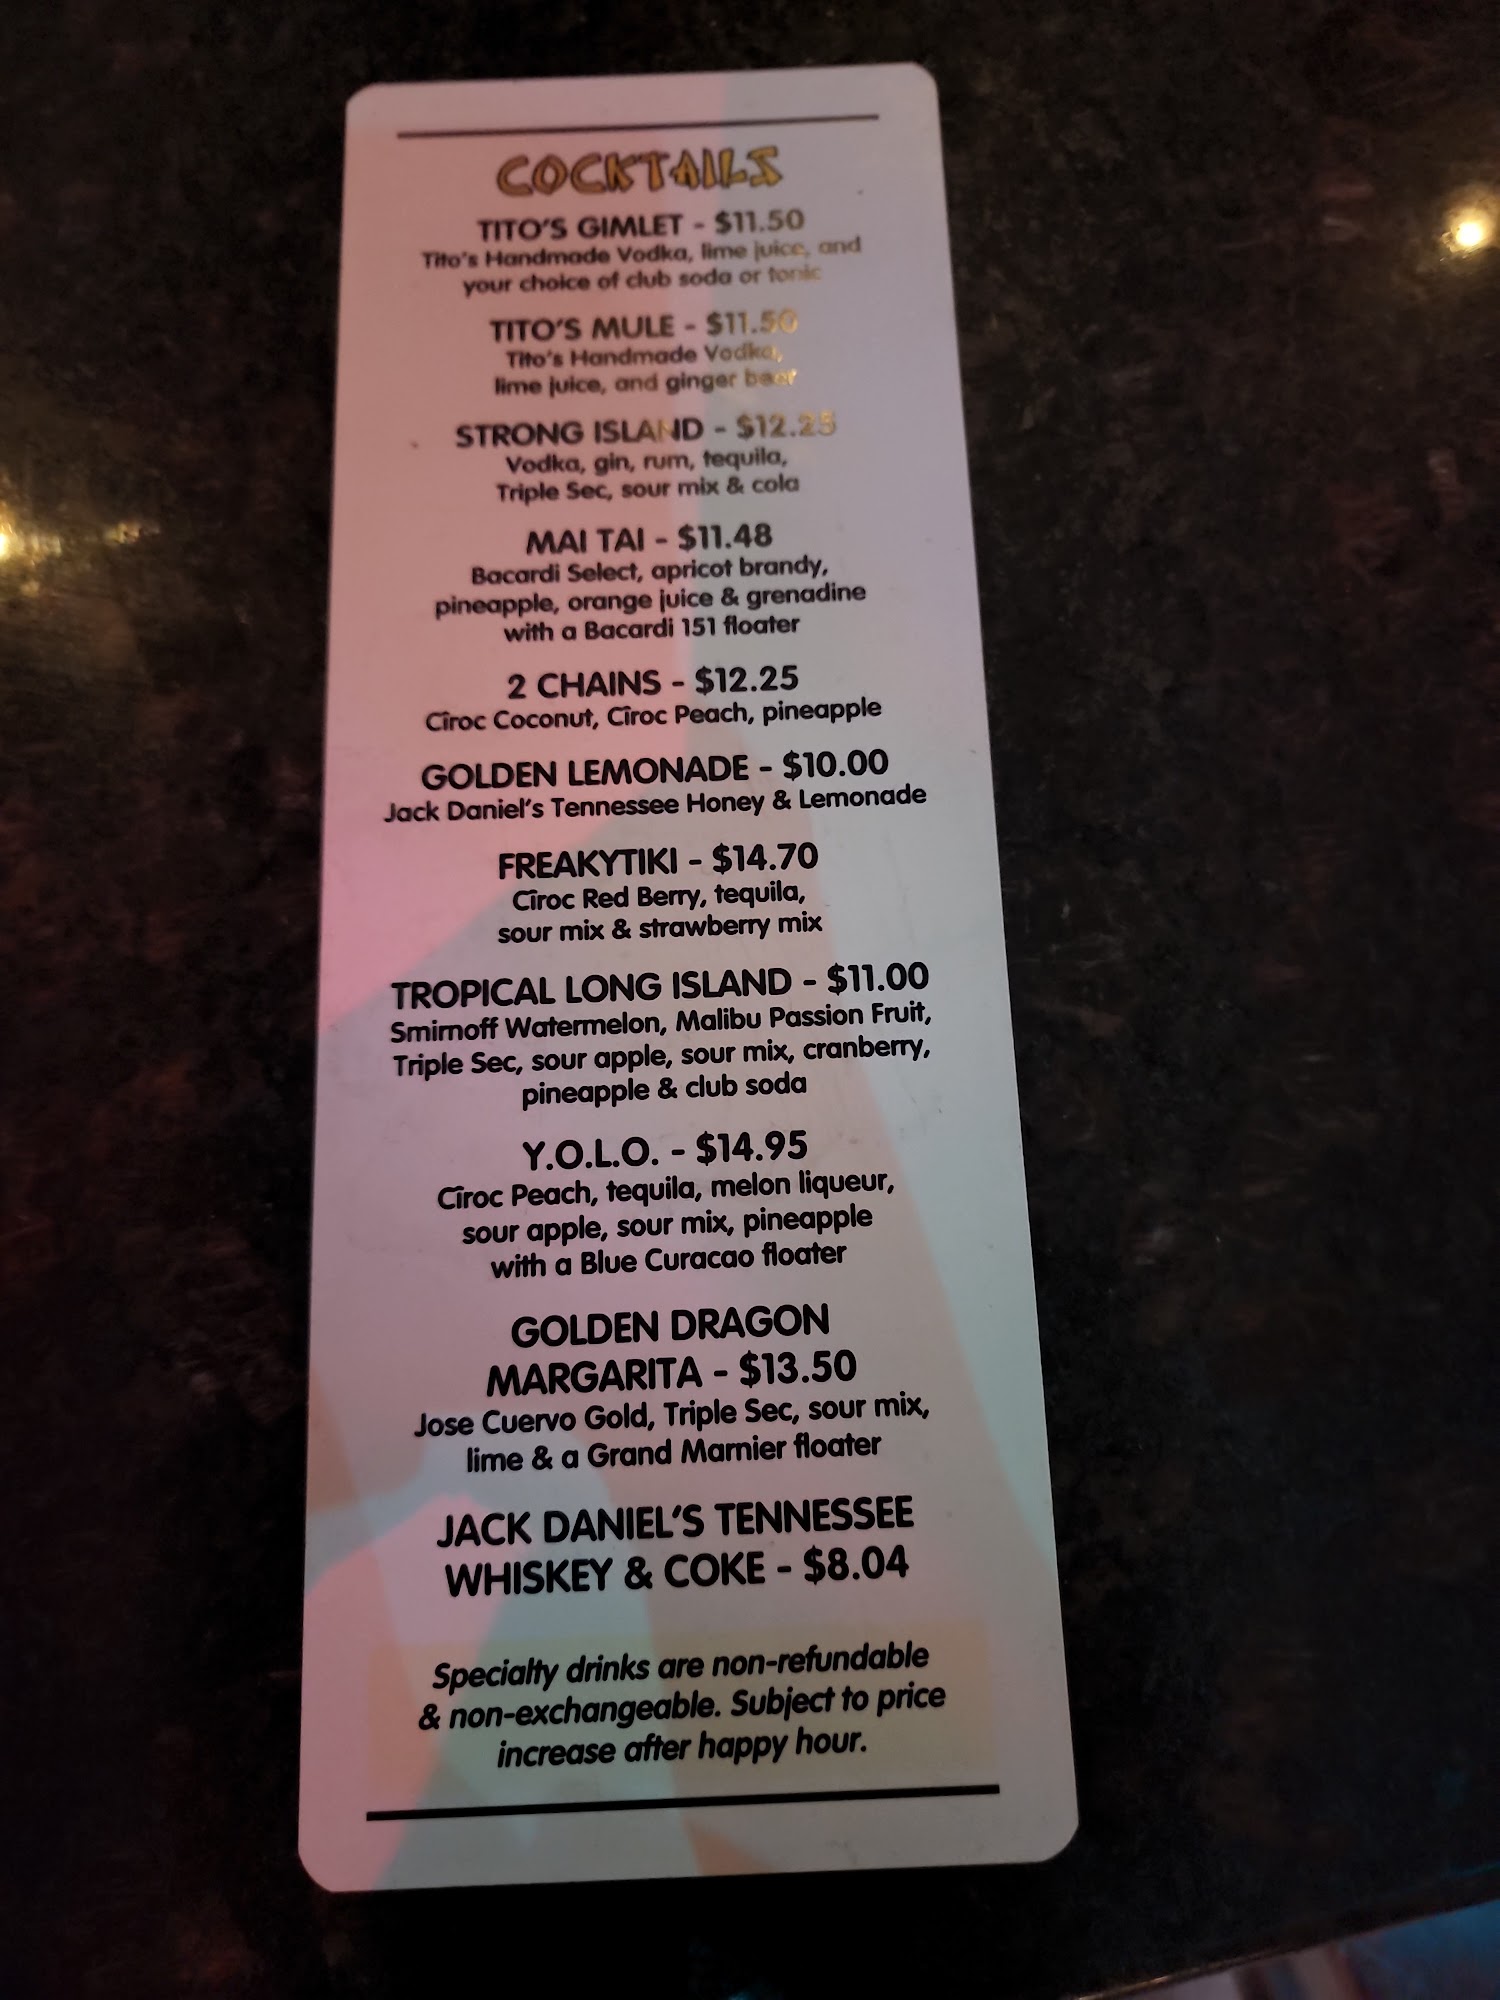 COCKTAILS
TITO'S GIMLET - $11.50
Tito's Handmade Vodka, lime juice, and
your choice of club soda or tonic
TITO'S MULE - $11.50
Tito's Handmade Vodka,
lime juice, and ginger beer
STRONG ISLAND - $12.25
Vodka, gin, rum, tequila,
Triple Sec, sour mix & cola
MAI TAI - $11.48
Bacardi Select, apricot brandy,
pineapple, orange juice & grenadine
with a Bacardi 151 floater
2 CHAINS - $12.25
Cîroc Coconut, Cîroc Peach, pineapple
GOLDEN LEMONADE - $10.00
Jack Daniel's Tennessee Honey & Lemonade
FREAKYTIKI - $14.70
Cîroc Red Berry, tequila,
sour mix & strawberry mix
TROPICAL LONG ISLAND - $11.00
Smirnoff Watermelon, Malibu Passion Fruit,
Triple Sec, sour apple, sour mix, cranberry,
pineapple & club soda
Y.O.L.O. - $14.95
Cîroc Peach, tequila, melon liqueur,
sour apple, sour mix, pineapple
with a Blue Curacao floater
GOLDEN DRAGON
MARGARITA - $13.50
Jose Cuervo Gold, Triple Sec, sour mix,
lime & a Grand Marnier floater
JACK DANIEL'S TENNESSEE
WHISKEY & COKE - $8.04
Specialty drinks are non-refundable
& non-exchangeable. Subject to price
increase after happy hour.